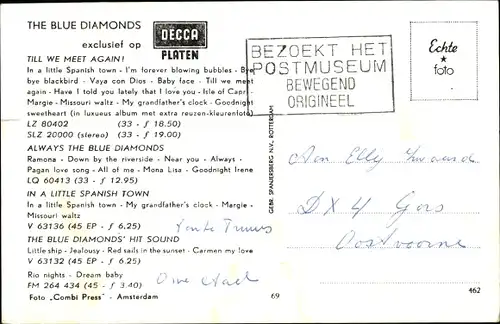 THE BLUE DIAMONDS
exclusief op DECCA
PLATEN
TILL WE MEET AGAIN!
In a little Spanish town - I'm forever blowing bubbles - Bye
bye blackbird - Vaya con Dios - Baby face - Till we meet
again - Have I told you lately that I love you - Isle of Capri -
Margie - Missouri waltz - My grandfather's clock - Goodnight
sweetheart (in luxueus album met extra reuzen-kleurenfoto)
LZ 80402 (33 - f 18.50)
SLZ 20000 (stereo) (33 - f 19.00)
ALWAYS THE BLUE DIAMONDS
Ramona - Down by the riverside - Near you - Always -
Pagan love song - All of me - Mona Lisa - Goodnight Irene
LQ 60413 (33 - f 12.95)
IN A LITTLE SPANISH TOWN
In a little Spanish town - My grandfather's clock - Margie -
Missouri waltz
V 63136 (45 EP - f 6.25)
THE BLUE DIAMONDS' HIT SOUND
Little ship - Jealousy - Red sails in the sunset - Carmen my love
V 63132 (45 EP - f 6.25)
Rio nights - Dream baby
FM 264 434 (45 - f 3.40)
Foto „Combi Press" - Amsterdam
69
GEBR. SPANJERSBERG N.V., ROTTERDAM
BEZOEKT HET
POSTMUSEUM
BEWEGEND
ORIGINEEL
Echte
foto
Aan Elly
DX 4 Gors
Oostvoorne
Tante Truus
Ome
462